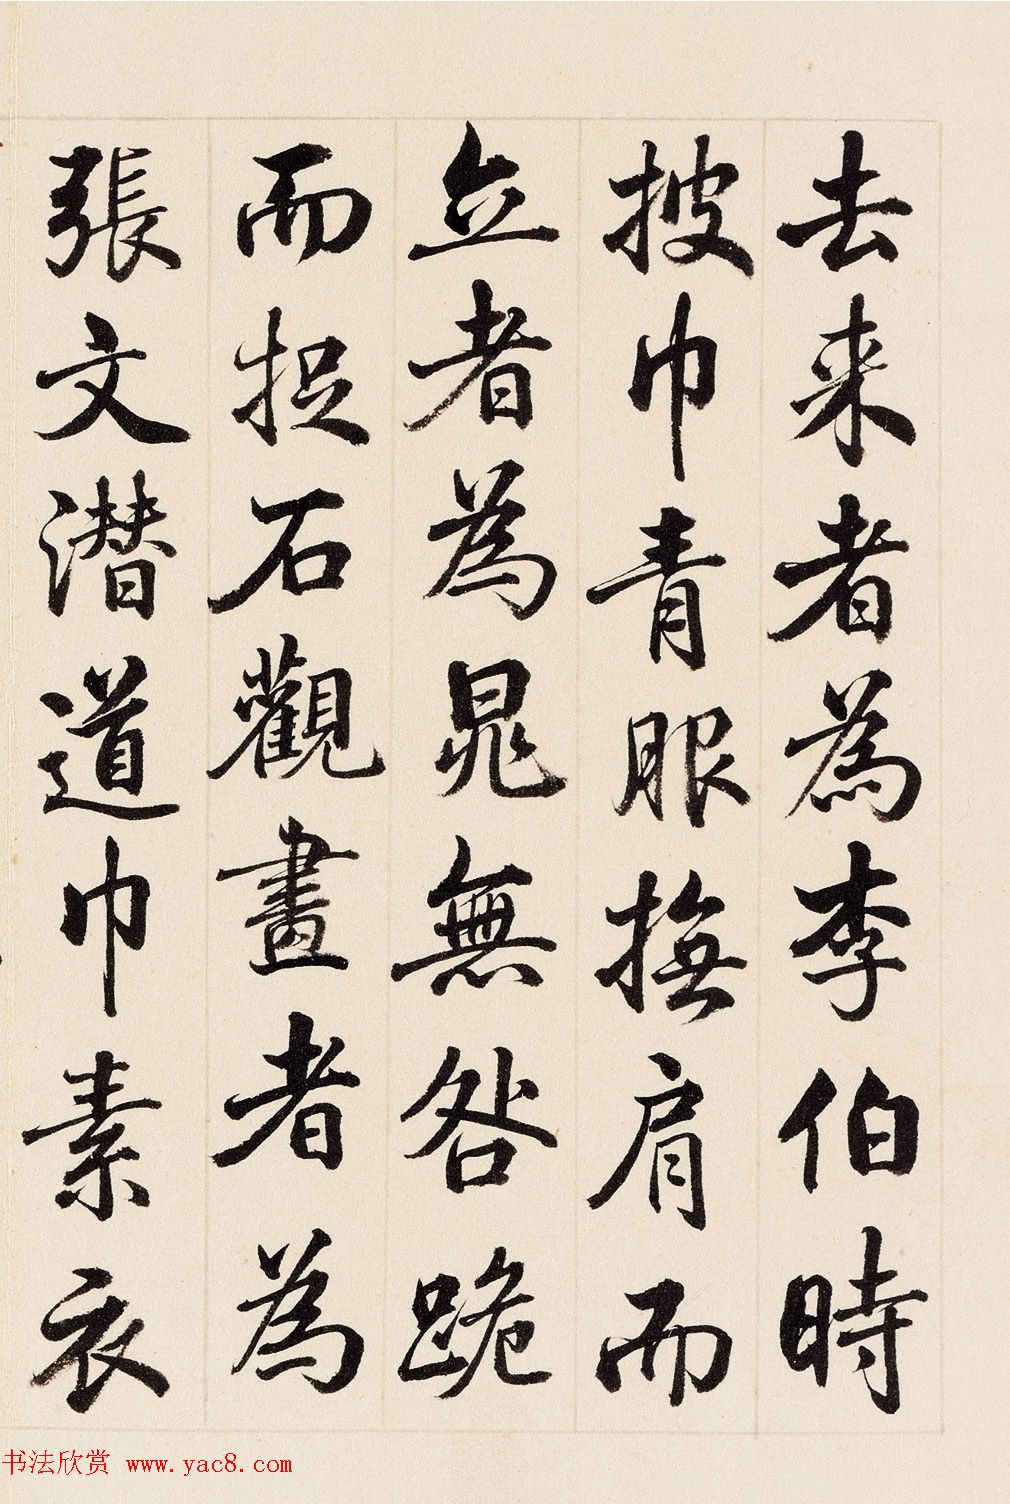 去来者為李伯時
披巾青服撫肩而
立者為晁無咎跪
而捉石觀畫者為
張文潛道巾素衣
书法欣赏 www.yac8.com